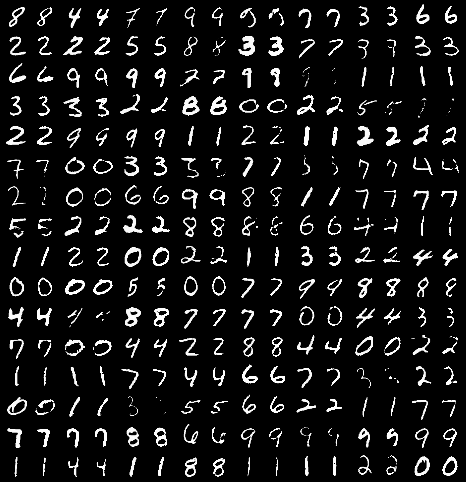 8 8 4 4 7 7 9 9 5 5 7 7 3 3 6 6
2 2 2 2 5 5 8 8 3 3 7 7 3 3 3 3
6 6 9 9 9 9 7 7 9 8 1 1 1 1
3 3 3 3 2 2 8 8 0 0 2 2 5 5
2 2 9 9 9 9 1 1 2 2 1 1 2 2 2 2
7 7 0 0 3 3 3 3 7 7 3 3 7 7 4 4
2 2 0 0 6 6 9 9 8 8 1 1 7 7 7 7
5 5 2 2 2 2 8 8 8 8 6 6 4 4 1 1
1 1 2 2 0 0 2 2 1 1 3 3 2 2 4 4
0 0 0 0 5 5 0 0 7 7 9 9 8 8 8 8
4 4 8 8 7 7 7 7 0 0 4 4 3 3
7 7 0 0 4 4 2 2 8 8 4 4 0 0 2 2
1 1 1 1 7 7 4 4 6 6 7 7 3 3 2 2
0 0 1 1 3 5 5 6 6 2 2 1 1 7 7
7 7 7 7 8 8 6 6 9 9 9 9 9 9 9 9
1 1 4 4 1 1 8 8 1 1 1 1 2 2 0 0